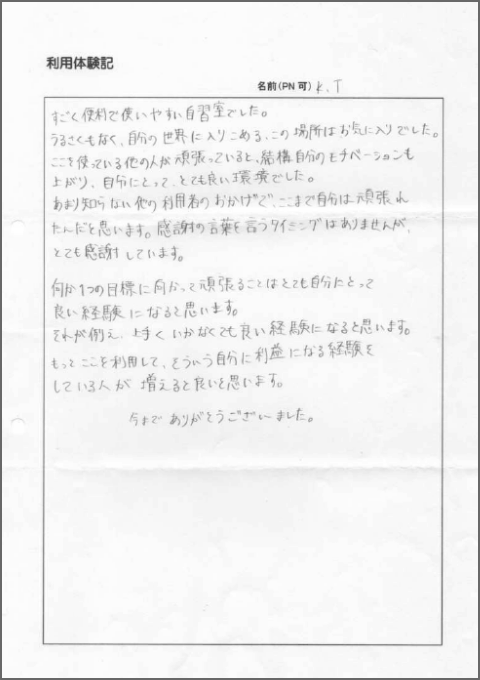 利用体験記
名前(PN可) K.T
すごく便利で使いやすい自習室でした。
うるさくもなく、自分の世界に入りこめる、この場所はお気に入りでした。
ここを使っている他の人が頑張っていると、結構自分のモチベーションも
上がり、自分にとって、とても良い環境でした。
あまり知らない他の利用者のおかげで、ここまで自分は頑張れ
たんだと思います。感謝の言葉を言うタイミングはありませんが、
とても感謝しています。
何か1つの目標に向かって頑張ることはとても自分にとって
良い経験になると思います。
それが例え、上手くいかなくても良い経験になると思います。
もっとここを利用して、そういう自分に利益になる経験を
している人が増えると良いと思います。
今までありがとうございました。